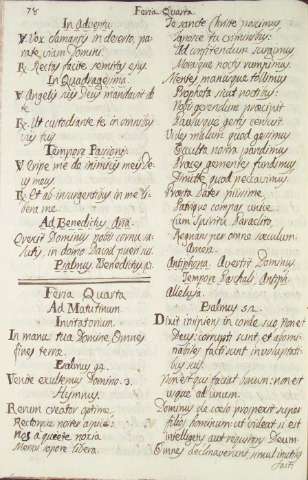 78 Feria Quarta
In Adventu
℣ Vox clamantis in deserto, pa-
rate viam Domini.
℟ Rectas facite semitas ejus.
In Quadragesima
℣ Angelis suis Deus mandavit de
te.
℟ Ut custodiant te in omnibus
viis tuis
Tempore Passionis
℣ Eripe me de inimicis meis De-
us meus
℟ Et ab insurgentibus in me li-
bera me.
Ad Benedictus Aña.
Erexit Dominus nobis cornu sa-
lutis, in domo David pueri sui.
Psalmus. Benedictus
Feria Quarta
Ad Matutinum
Invitatorium
In manu tua Domine. Omnes
fines terræ.
Psalmus 94.
Venite exultemus Domino. 3.
Hymnus.
Rerum creator optime
Rectorque noster aspice:
Nos a quiete noxia
Mersos sopore libera.
Te sancte Christe poscimus
Ignosce tu criminibus:
Ad confitendum surgimus
Morasque noctis rumpimus
Mentes manusque tollimus
Propheta sicut noctibus
Nobis gerendum præcipit
Paulusque gestis censuit
Vides malum quod gessimus
Occulta nostra pandimus
Preces gementes fundimus
Dimitte quod peccavimus
Præsta Pater piissime
Patrique compar unice
Cum Spiritu Paraclito
Regnans per omne sæculum.
Amen.
Antiphona. Avertit Dominus
Tempori Paschali Antipã
Alleluja.
Psalmus 52.
Dixit insipiens in corde suo: Non est
Deus: corrupti sunt et abomi-
nabiles facti sunt in
suis.
Non est qui faciat bonum: non est
usque ad unum.
Dominus de cœlo prospexit super
filios hominum: ut videat si est
intelligens aut requirens Deum
Omnes declinaverunt simul inutiles
facti